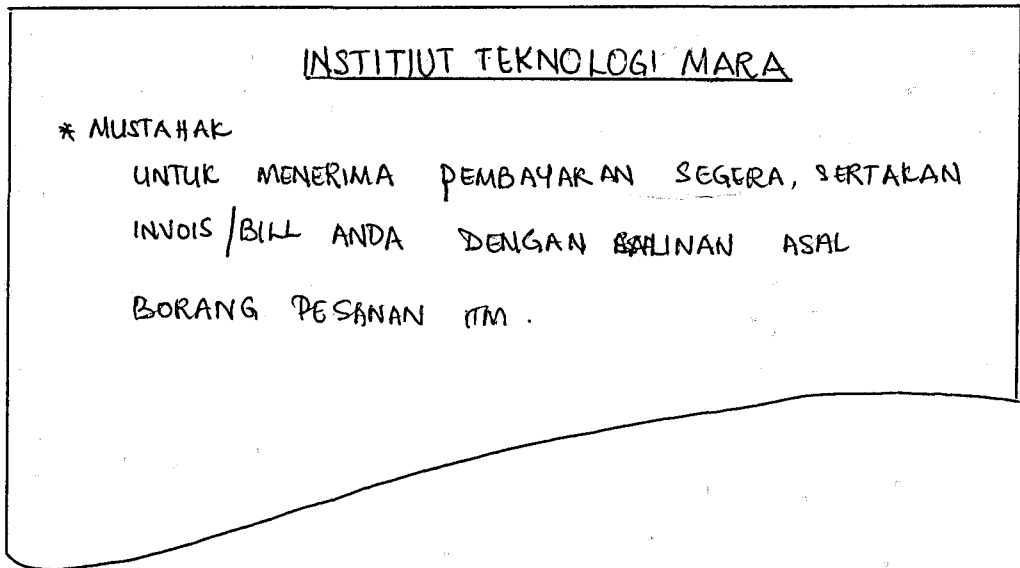 INSTITIUT TEKNOLOGI MARA
* MUSTAHAK
UNTUK MENERIMA PEMBAYARAN SEGERA, SERTAKAN
INVOIS/BILL ANDA DENGAN SALINAN ASAL
BORANG PESANAN ITM.